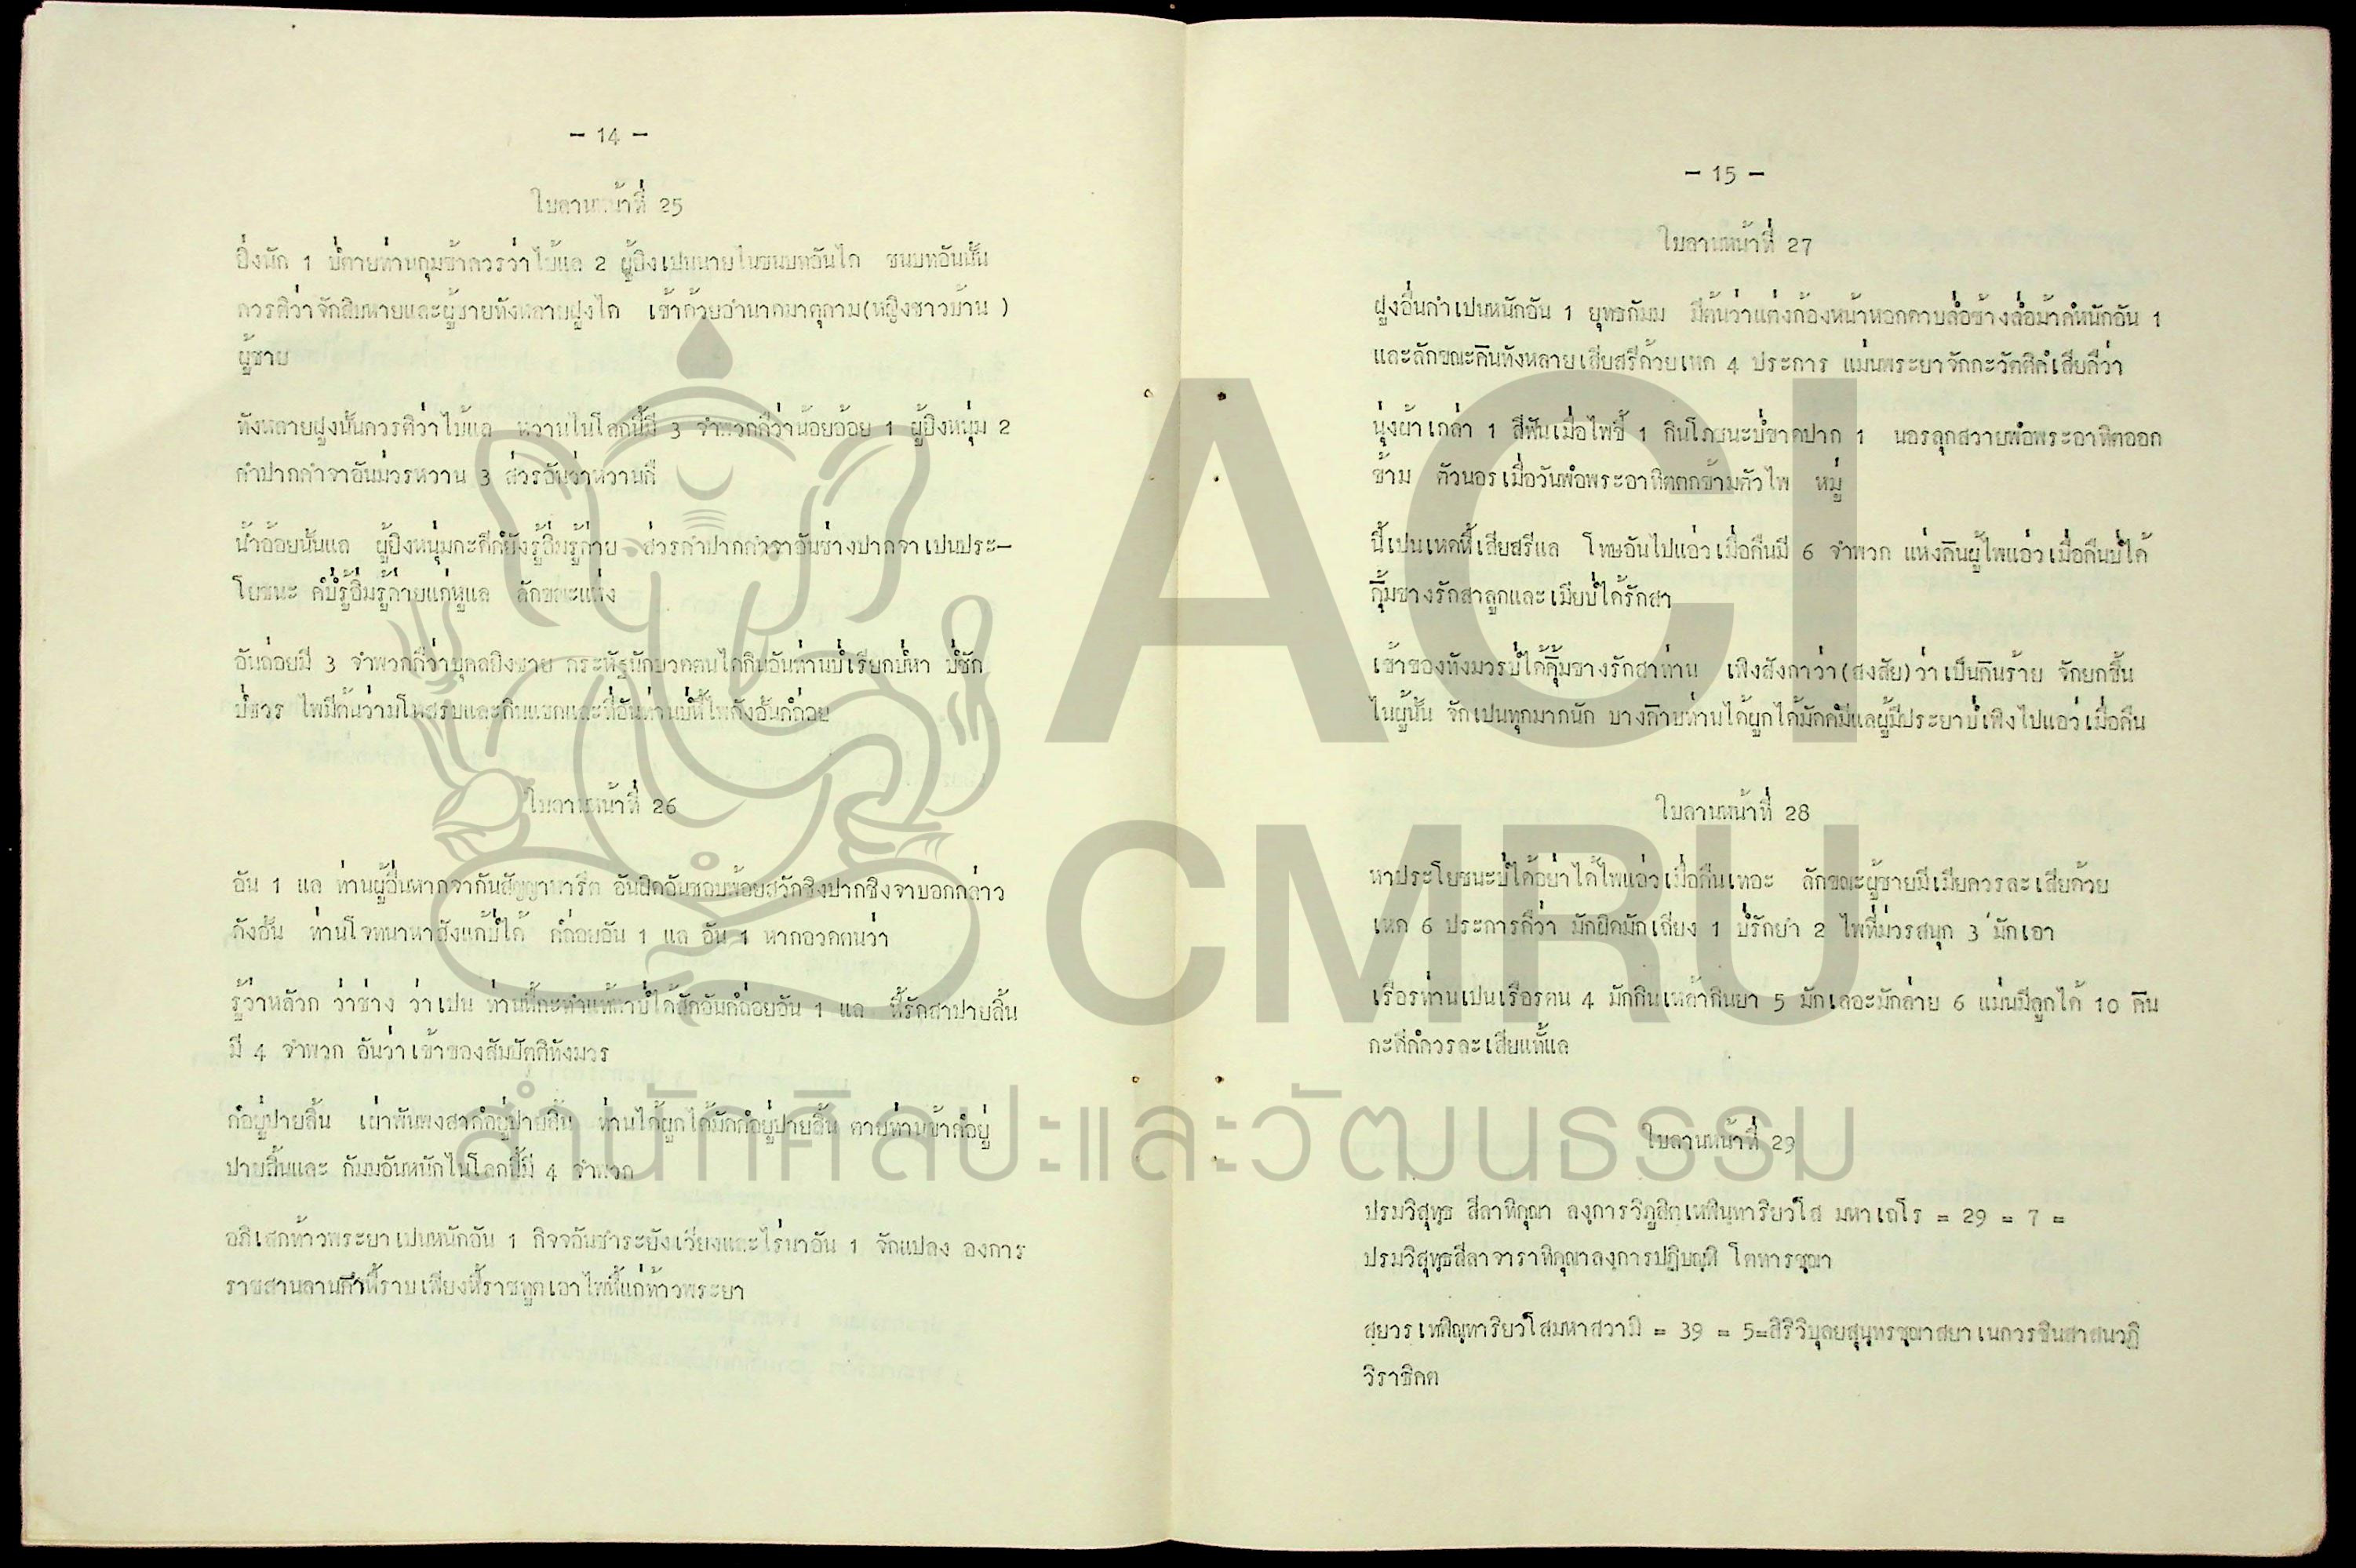 - 14 -
ใบลานหน้าที่ 25
ยิ่งนัก 1 บ่ตายท่านกุมข้าควรว่าไม้แล 2 ผู้ยิงเปนนายในชนบทอันใด ชนบทอันนั้น
ควรติว่าจักสิบหายและผู้ชายทังหลายฝูงใด เข้าด้วยอำนาดมาตุกาม(หญิงชาวบ้าน )
ผู้ชาย
ทังหลายฝูงนั้นควรติว่าไม้แล หวานในโลกนี้มี 3 จำพวกคืว่าน้อยอ้อย 1 ผู้ยิงหนุ่ม 2
คำปากคำจาอันม่วรหวาน 3 ส่วรอันว่าหวานคื
น้ำอ้อยนั้นแล ผู้ยิงหนุ่มกะดีก็ยังรู้อิ่มรู้ด่าย ส่วรคำปากคำจาอันช่างปากจาเปนประ-
โยชนะ ก็บ่รู้อิ่มรู้ด่ายแก่หูแล ลักขณะแห่ง
อันถ่อยมี 3 จำพวกคืว่าบุคลยิงชาย กระหัฐนักบวดตนใดกินอันท่านบ่เรียกบ่หา บ่ชัก
บ่ชวร ไพมีต้นว่ามโหสรบและกินแขกและที่อันท่านบ่หื้ไพดังอั้นก็ถ่อย
ใบลานหน้าที่ 26
อัน 1 แล ท่านผู้อื่นหากจากันสัญญาบาริด อันผิดอันชอบพ้อยสวักชิงปากชิงจาบอกกล่าว
ดังอั้น ท่านโจทนาหาสังแก้บ่ได้ ก็ถ่อยอัน 1 แล อัน 1 หากอวดตนว่า
รู้ว่าหลัวก ว่าช่าง ว่าเปน ท่านหื้กะทำแท้หาบ่ได้สักอันก็ถ่อยอัน 1 แล หื้รักสาปายลิ้น
มี 4 จำพวก อันว่าเข้าของสัมปัตติทังมวร
ก็อยู่ปายลิ้น เผ่าพันพงสาก็อยู่ปายลิ้น ท่านได้ผูกได้มักก็อยู่ปายลิ้น ตายท่านข้าก็อยู่
ปายลิ้นและ กัมมอันหนักในโลกนี้มี 4 จำพวก
อภิเสกท้าวพระยาเปนหนักอัน 1 กิจจอันชำระยังเวียงและไร่นาอัน 1 จักแปลง องการ
ราชสานลานคำหื้ราบเพียงหื้ราชทูตเอาไพหื้แก่ท้าวพระยา
- 15 -
ใบลานหน้าที่ 27
ฝูงอื่นก็าเปนหนักอัน 1 ยุทธกัมม มีต้นว่าแต่งก้องหน้าหอกดาบล่อช้างล่อม้าก็หนักอัน 1
และลักขณะคืนทังหลายเสียสรีด้วยเหต 4 ประการ แม่นพระยาจักกะวัตติก็เสียคืว่า
นุ่งผ้าเกล่า 1 สีฟันเมื่อไพขี้ 1 กินโภชนะบ่ขาดปาก 1 นอรลุกสวายพ่อพระอาทิตออก
ข้าม ตัวนอรเมื่อวันพ่อพระอาทิตตกข้ามตัวไพ หมู่
นี้เปนเหตหื้เสียสรีแล โทษอันไปแอ่วเมื่อคืนมี 6 จำพวก แห่งคืนผู้ไพแอ่วเมื่อคืนบ่ได้
กุ้ิมขางรักสาลูกและเมียบ่ได้รักสา
เข้าของทังมวรบ่ได้กุ้ิมขางรักสาท่าน เพิงสังกาว่า(สงสัย)ว่าเป็นคืนร้าย จักยกขึ้น
ในผู้นั้น จักเปนทุกมากนัก บางคาบท่านได้ผูกได้มักก็มีแลผู้มีประยาบ่เพิงไปแอว่เมื่อคืน
ใบลานหน้าที่ 28
หาประโยชนะบ่ได้อย่าได้ไพแอ่วเมื่อคืนเทอะ ลักขณะผู้ชายมีเมียควรละเสียด้วย
เหต 6 ประการคืว่า มักผิดมักเถียง 1 บ่รักยำ 2 ไพที่ม่วรสนุก 3 มักเอา
เรือรท่านเปนเรือรตน 4 มักกินเหล้ากินยา 5 มักเลอะมักล่าย 6 แม่นมีลูกได้ 10 คืน
กะดีก็ควรละเสียแท้แล
ใบลานหน้าที่ 29
ปรมวิสุทฺธ สีลาทิคุณา ลงฺการวิภูสิตฺเทพินฺทาริยวํโส มหาเถโร = 29 = 7 =
ปรมวิสุทฺธสีลาจาราทิคุณาลงฺการปฏิบณฺฑิ โตทารชฺฌา
สยวรเทพิญฺทาริยวํโสมหาสวามิ = 39 = 5=สิริวิบุลยสุนฺทรชฺฌาสยาเนกวรชินสาสนวฏิ
วิราชิตต
ACI
CMRU
สำนักศิลปะและวัฒนธรรม